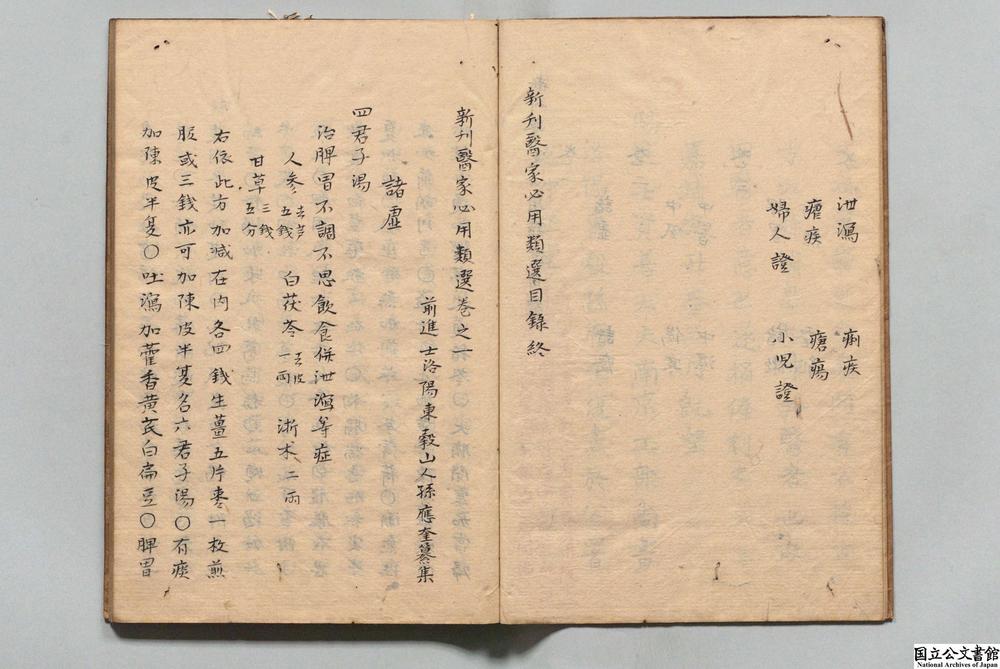 泄瀉　痢疾
瘧疾　瘡瘍
婦人證　小児證
新刋醫家必用類選目錄終
新刋醫家必用類選卷之
前進士洛陽東穀山人孫應奎纂集
諸虛
四君子湯
治脾胃不調不思飲食併泄瀉等症
人參去芦五錢　白茯苓去皮一兩　淅术二兩
甘草三錢五分
右依此方加減在内各四錢生薑五片枣一枚煎
服或三錢亦可加陳皮半夏名六君子湯〇有痰
加陳皮半夏〇吐瀉加藿香黄芪白扁豆〇脾胃
国立公文書館
National Archives of Japan